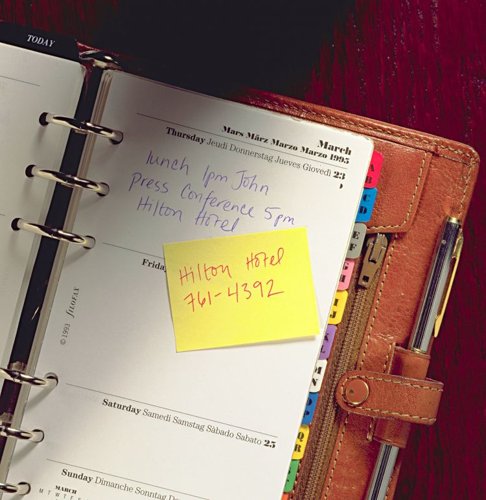 TODAY
March
Mars März Marzo Marzo 1995
Thursday Jeudi Donnerstag Jueves Giovedì 23
lunch 1pm John
Press Conference 5pm
Hilton Hotel
Hilton Hotel
761-4392
© 1993 filofax
Saturday Samedi Samstag Sàbado Sabato 25
Sunday Dimanche Sonntag
MARCH
M T W T F S